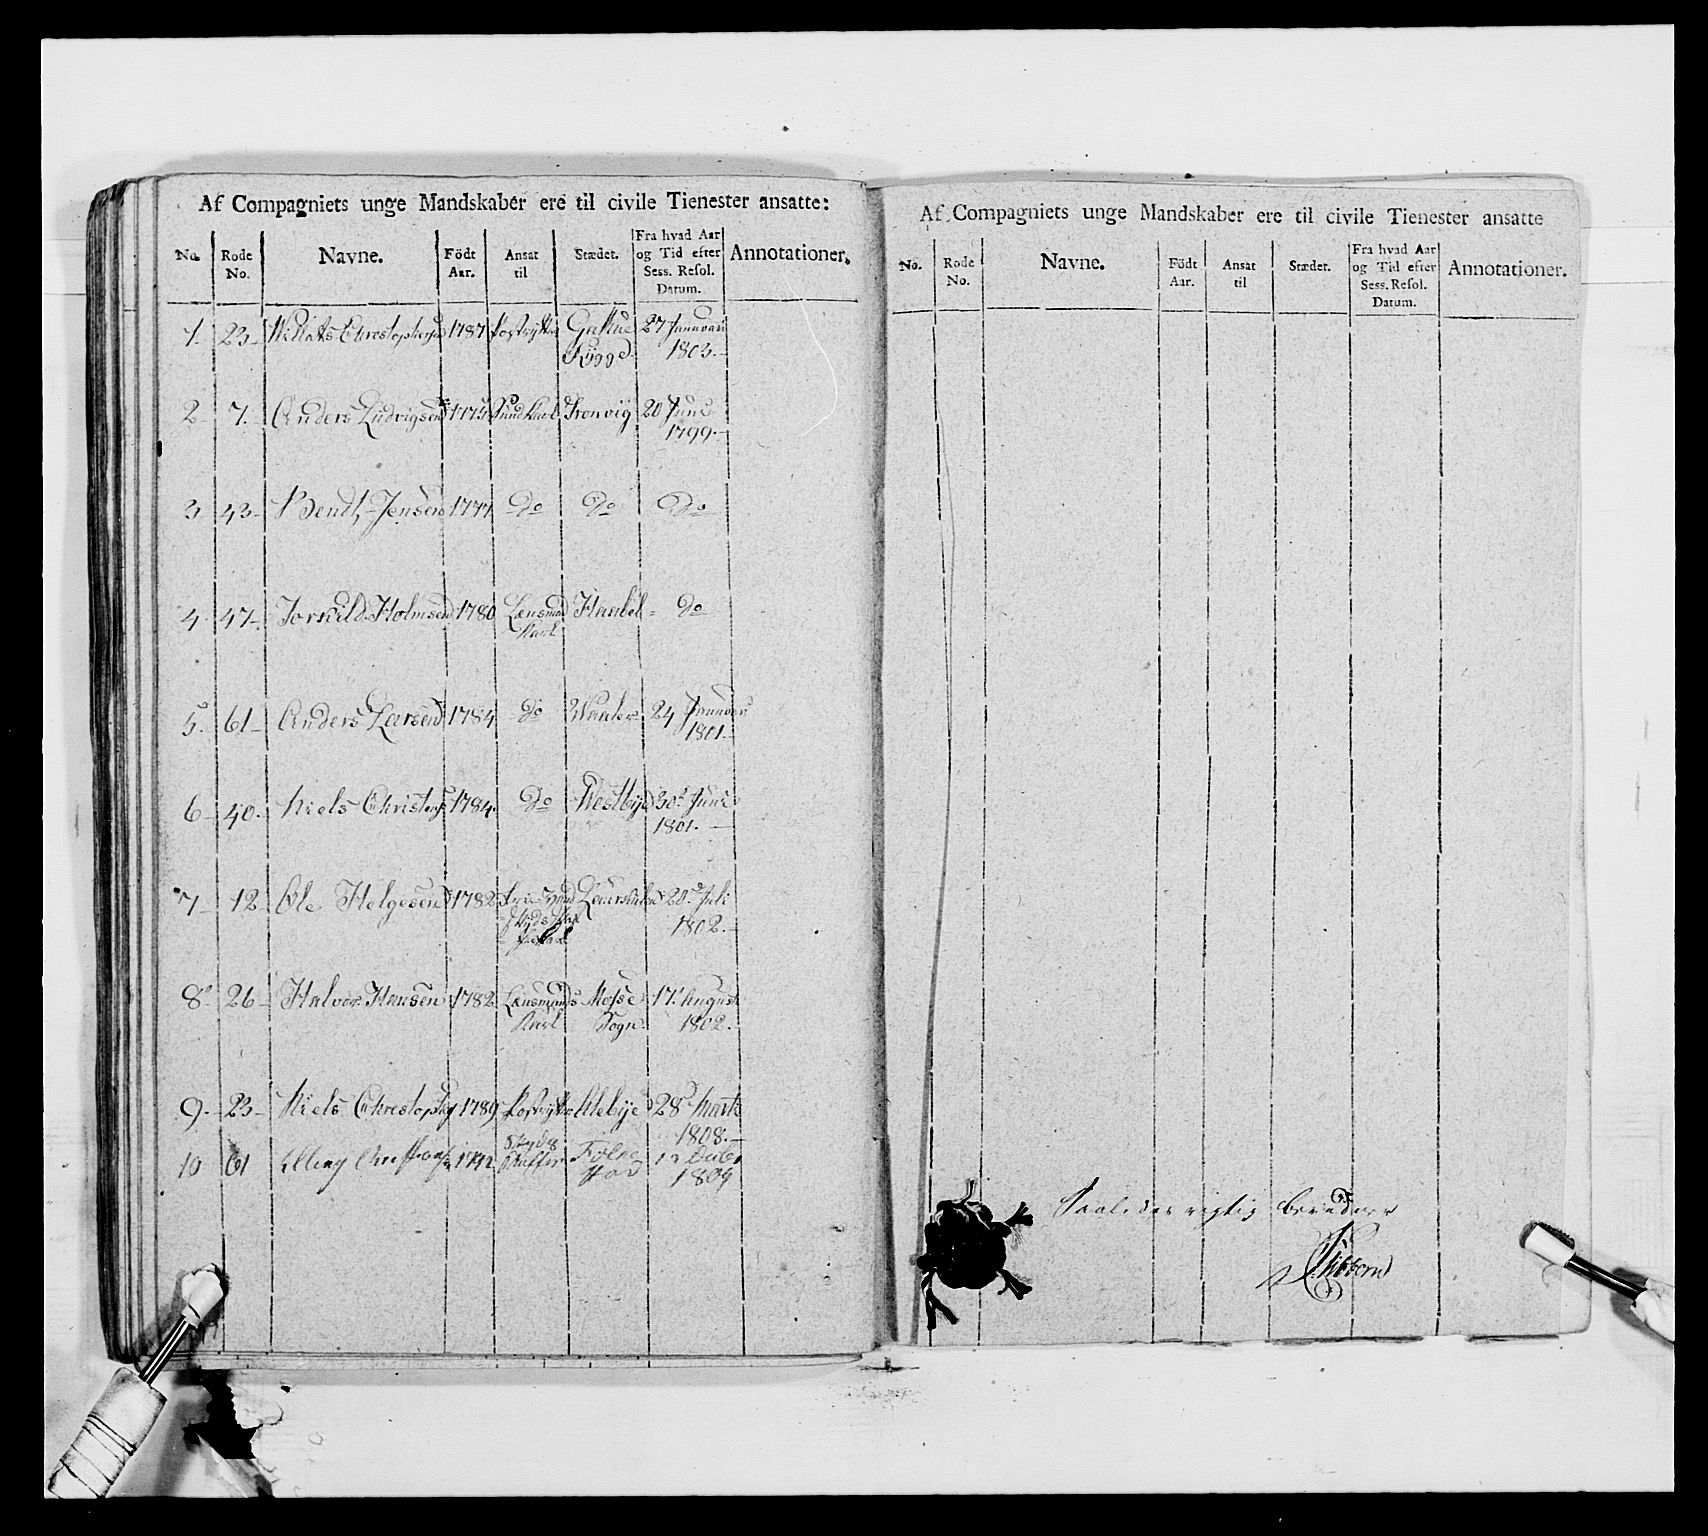 Af Compagniets unge Mandskaber ere til civile Tienester ansatte:
No. Rode No. Navne. Födt Aar. Ansat til Stædet. Fra hvad Aar og Tid efter Sess. Resol. Datum. Annotationer.
1. 23. Christophersen 1787 27 Januari
1803.
2. 7. Anders Ludvigsen 1774 Sundkarl Tronvig 20 Juni
1799.
3 43. Bendt Jensen 1777 Do Do Do
4. 47. Torkild Holmsen 1780 Lænsmand Haabøl Do
Karl
5. 61. Anders Larsen 1784 Do Waaler 24 Januari
1801.
6. 40. Niels Christens 1784. Do Westbye 30t Juni
1801.
7. 12 Ole Helgesen 1782 20d Juli
1802.
8. 26 Halvor Hansen 1782 Lænsmands Mosse 17t August
Karl Sogn 1802.
9. 23 Niels Christophs 1789 28d Marti
1808.
10 61 Elling 1809
Af Compagniets unge Mandskaber ere til civile Tienester ansatte
No. Rode No. Navne. Födt Aar. Ansat til Stædet. Fra hvad Aar og Tid efter Sess. Resol. Datum. Annotationer.
Saaledes rigtig
Sibbern